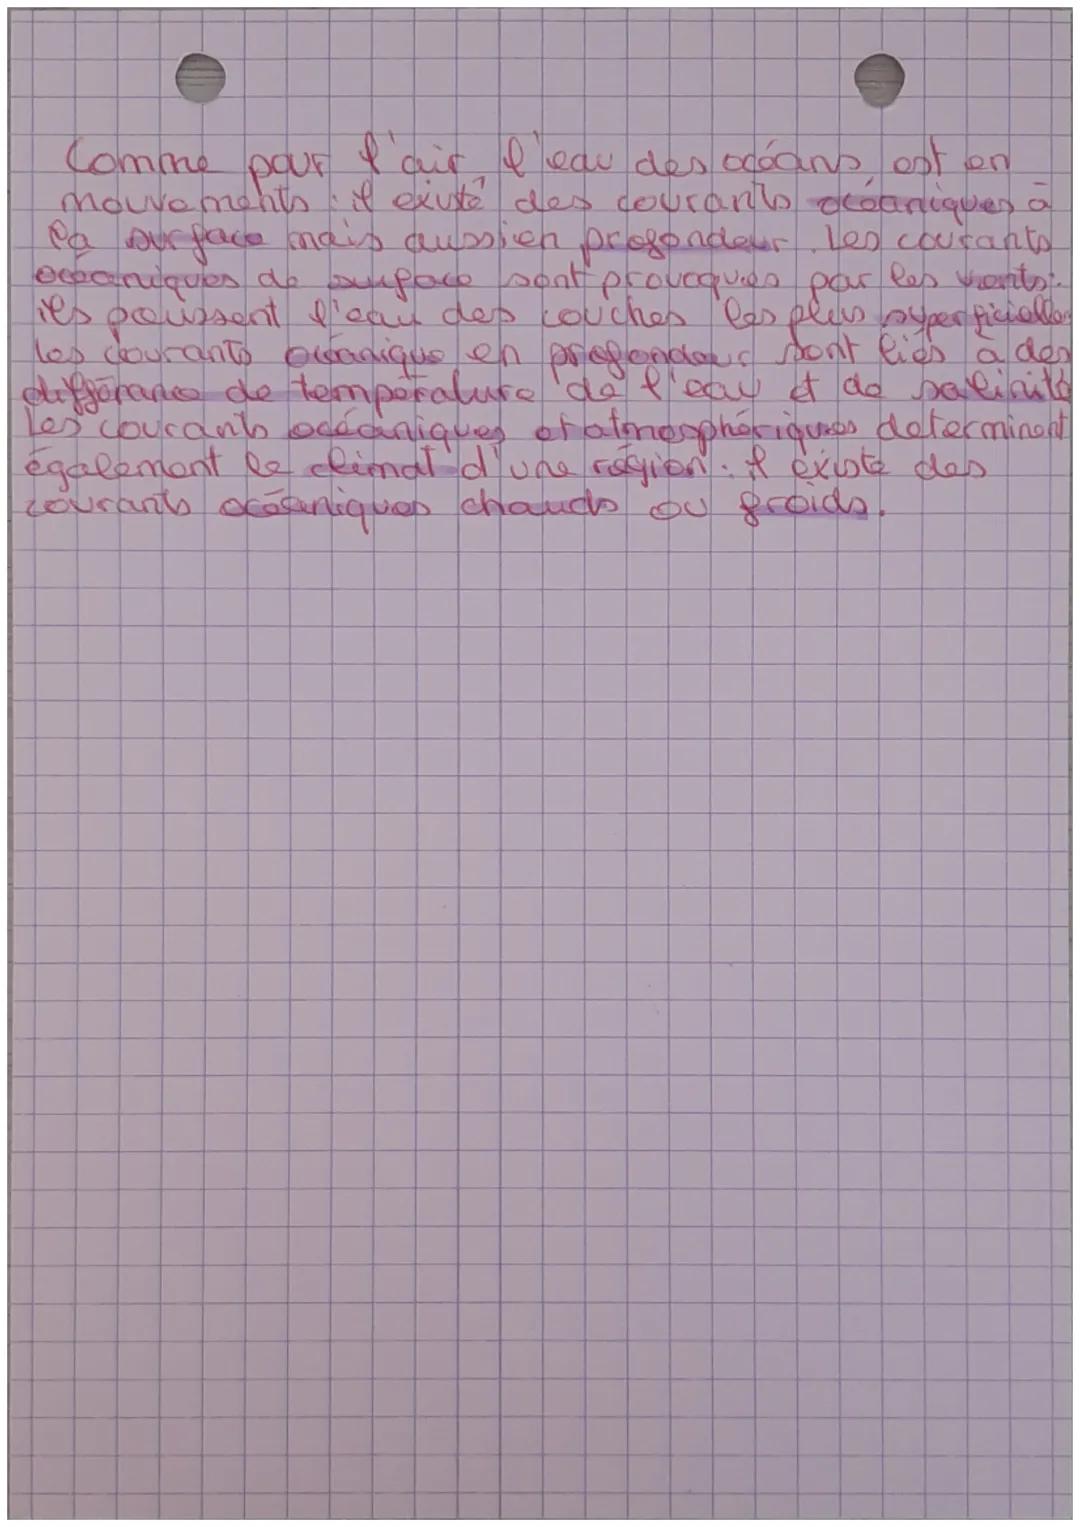 Comme pour l'air l'eau des océans, est en
mouvements : il existe des courants océaniques à
la surface mais aussi en profondeur. Les courants
océaniques de surface sont provoqués par les vents :
ils poussent l'eau des couches les plus superficielles
les courants océanique en profondeur sont liés à des
différance de température de l'eau et de salinité
Les courants océaniques et atmosphériques determinent
également le climat d'une région : il existe des
courants océaniques chauds ou froids.